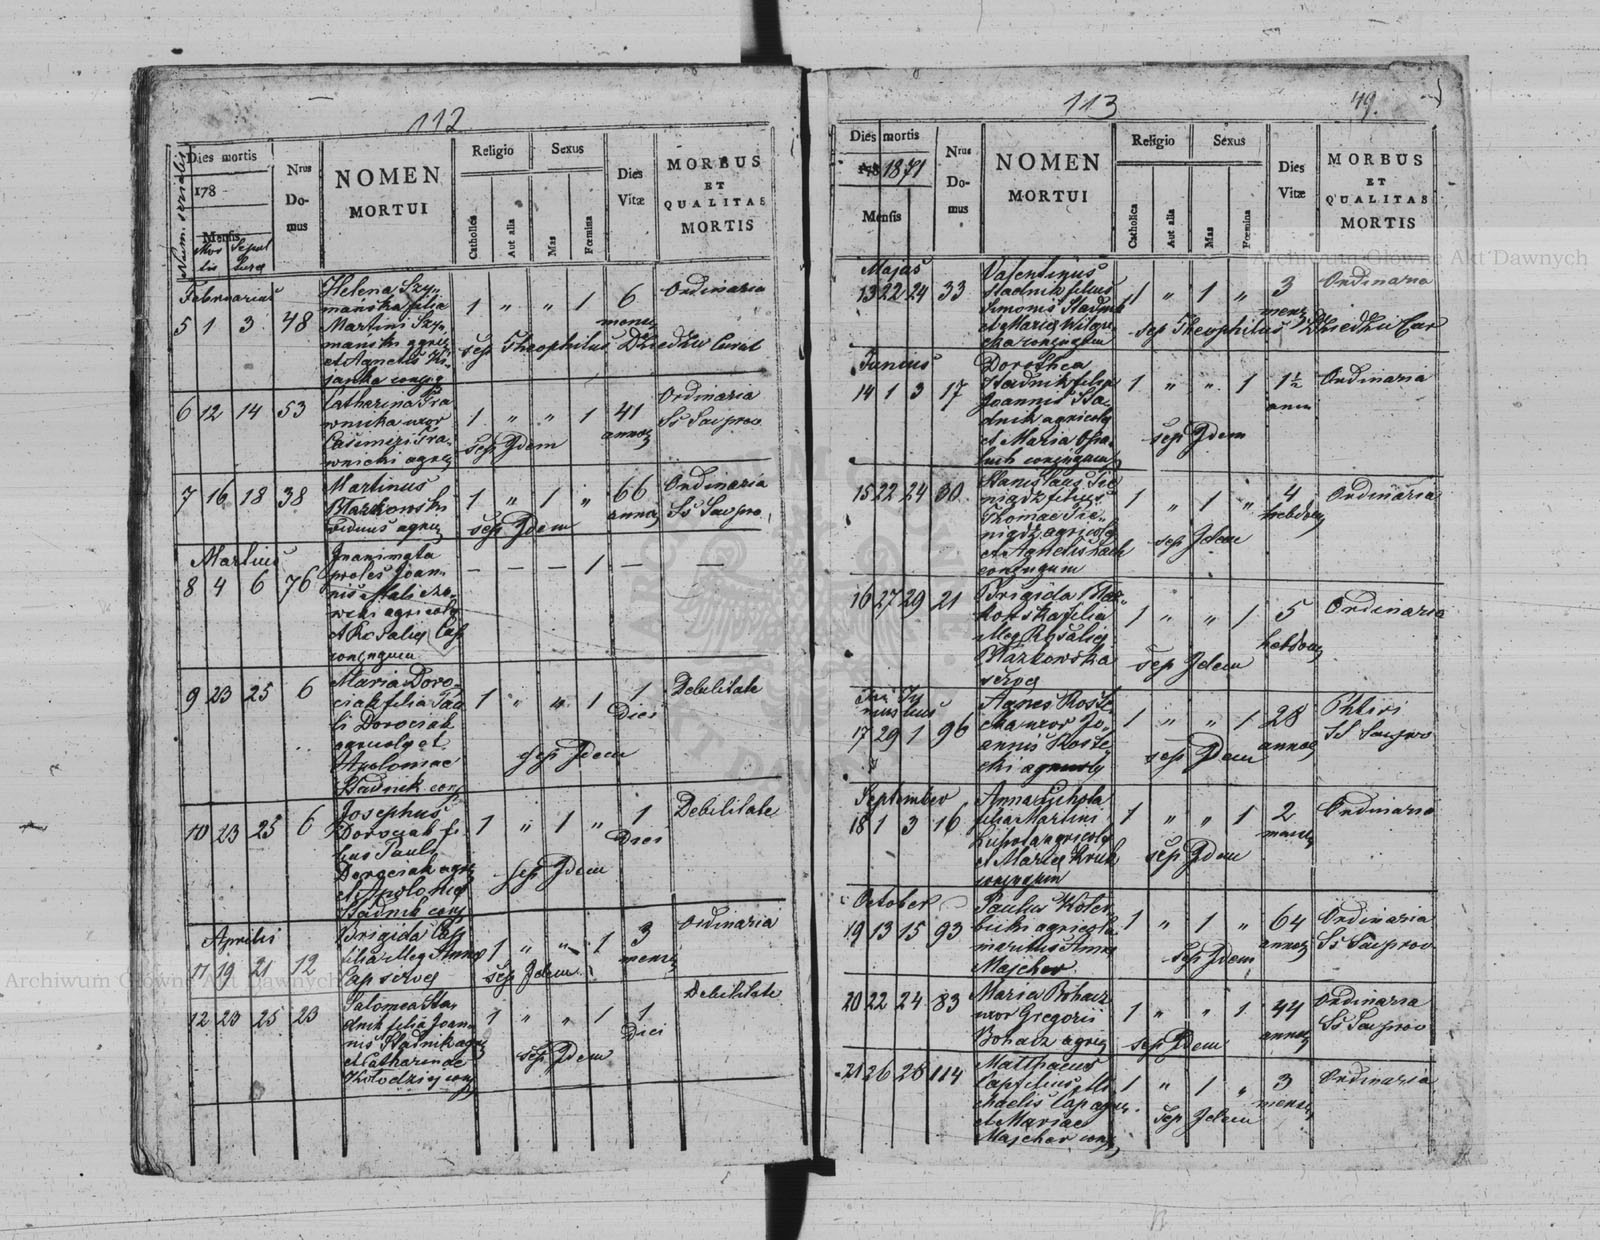 112
Num. serialis
Dies mortis
178
Mensis
Mor
tis
Sepul
turae
Nrus
Do-
mus
NOMEN
MORTUI
Religio
Catholica
Aut alia
Sexus
Mas
Fœmina
Dies
Vitæ
MORBUS
ET
QUALITAS
MORTIS
Februarius
5 1 3 48
Helena Szy-
mańska filia
Martini Szy-
manski agric
et Agnetis
conjug
1 " " 1 6
mens
Ordinaria
sep Theophilus Dziedzic Curat
6 12 14 53
Catharina
uxor
Casimiri
agric
1 " " 1 41
annor
Ordinaria
sep Idem
7 16 18 38
Martinus
viduus agric
1 " 1 " 66
annor
Ordinaria
sep Idem
Martius
8 4 6 76
Inanimata
proles Joan-
nis
agricolae
et Rosaliae Cap
conjugum
— — — 1 — —
9 23 25 6
Maria Doro-
ciak filia Pau
li Dorociak
et
Apoloniae
Stadnik conj
1 " " 1 1
Diei
Debilitate
sep Idem
10 23 25 6
Josephus
Dorociak fi-
lius Pauli
Dorociak agric
et Apoloniae
Stadnik conj
1 " 1 " 1
Diei
Debilitate
sep Idem
Aprilis
11 19 21 12
Brigida Cap
filia illeg Annae
Cap servae
1 " " 1 3
mens
Ordinaria
sep Idem
12 23 25 23
Salomea Sta-
dnik filia Joan-
nis Stadnik agric
et Catharinae
Kołodziej conj
1 " " 1 1
Diei
Debilitate
sep Idem
113
49.
Dies mortis
178 1871
Mensis
Nrus
Do-
mus
NOMEN
MORTUI
Religio
Catholica
Aut alia
Sexus
Mas
Fœmina
Dies
Vitæ
MORBUS
ET
QUALITAS
MORTIS
Majus
13 22 24 33
Valentinus
Stadnik filius
Simonis Stadnik
et Mariae
conjugum
1 " 1 " 3
mens
Ordinaria
sep Theophilus Dziedzic Cur
Junius
14 1 3 17
Dorothea
Stadnik filia
Joannis Sta-
dnik agricolae
et Maria
conjugum
1 " " 1 1½
anni
Ordinaria
sep Idem
15 22 24 30
Stanislaus Pie
niądz filius
Thomae Pie-
niądz agricolae
et Agnetis
conjugum
1 " 1 " 4
hebdom
Ordinaria
sep Idem
16 27 29 21
Brigida
filia
illeg Rosaliae
servae
1 " " 1 5
hebdom
Ordinaria
sep Idem
Ju
nius
Ju
lius
17 29 1 96
Agnes
uxor Jo-
annis
1 " " 1 28
annor
Phtisi
sep Idem
September
18 1 3 16
Anna
filia Martini
agricolae
et Mariae Kruk
conjugum
1 " " 1 2
mens
Ordinaria
sep Idem
October
19 13 15 93
Paulus
agricola
maritus Annae
Majcher
1 " 1 " 64
annor
Ordinaria
sep Idem
20 22 24 83
Maria Bohacz
uxor Gregorii
Bohacz agric
1 " " 1 44
annor
Ordinaria
sep Idem
21 26 28 114
Matthaeus
Cap filius Mi
chaelis Cap agric
et Mariae
Majcher conj
1 " 1 " 3
mens
Ordinaria
sep Idem
Archiwum Główne Akt Dawnych
Archiwum Główne Akt Dawnych